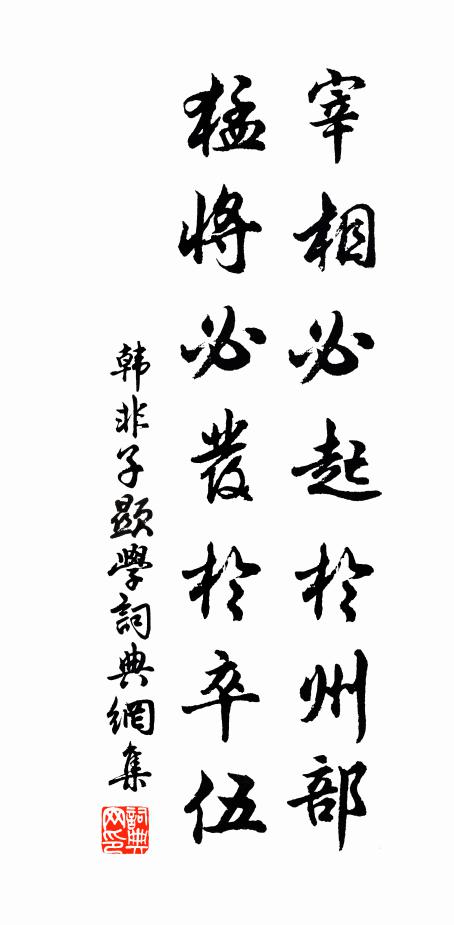 宰相必起於州部
猛將必發於卒伍
韩非子顯學詞典網集
詞典
网印